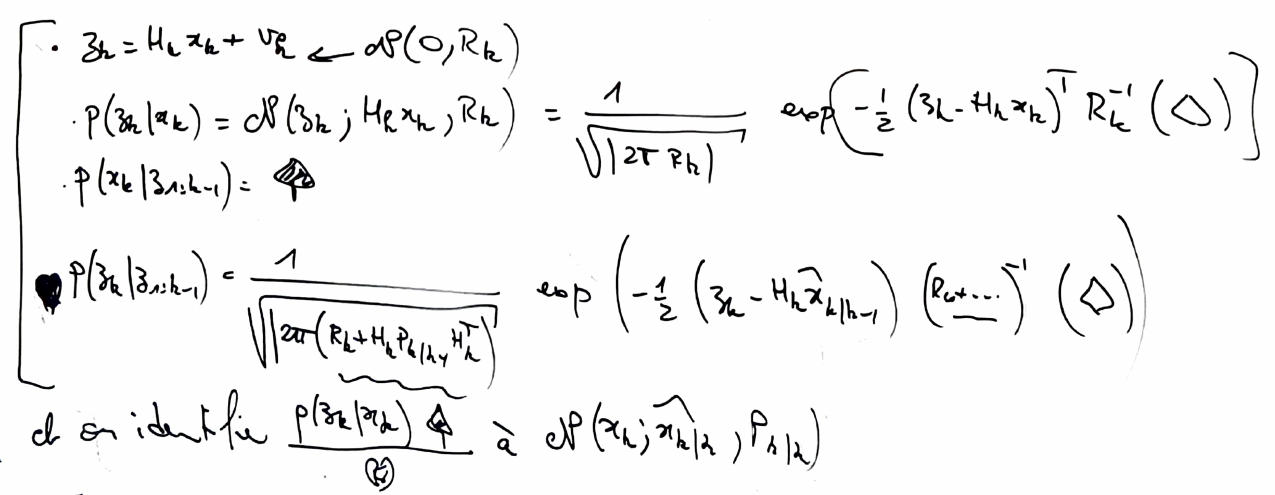 · z_k = H_k x_k + v_k ← 𝒩(0, R_k)
· p(z_k|x_k) = 𝒩(z_k ; H_k x_k , R_k) = 1 / √|2π R_k| exp(-1/2 (z_k - H_k x_k)^T R_k^{-1} (△)]
· p(x_k|z_{1:k-1}) = ♠
♥ p(z_k|z_{1:k-1}) = 1 / √|2π(R_k + H_k P_{k|k-1} H_k^T)| exp(-1/2 (z_k - H_k x̂_{k|k-1}) (R_k + ....)^{-1} (△))
et on identifie p(z_k|x_k) ♠ / ♥ à 𝒩(x_k ; x̂_{k|k} , P_{k|k})